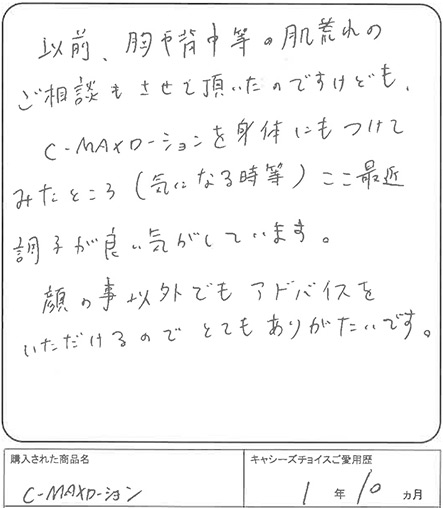 以前、胸や背中等の肌荒れの
ご相談もさせて頂いたのですけども、
C-MAXローションを身体にもつけて
みたところ（気になる時等）ここ最近
調子が良い気がしています。
顔の事以外でもアドバイスを
いただけるのでとてもありがたいです。
購入された商品名
キャシーズチョイスご愛用歴
C-MAXローション
1年10ヵ月